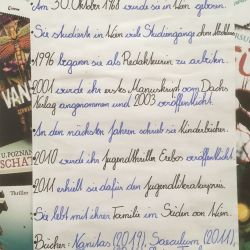 Am 30. Oktober 1968 wurde sie in Wien geboren.
Sie studierte in Wien viele Studiengänge ohne Abschluss
1996 begann sie als Redakteurin zu arbeiten.
2001 wurde ihr erstes Manuskript vom Dachs
Verlag angenommen und 2003 veröffentlicht.
In den nächsten Jahren schrieb sie Kinderbücher.
2010 wurde ihr Jugendthriller Erebos veröffentlicht.
2011 erhielt sie dafür den Jugendliteraturpreis.
Sie lebt mit ihrer Familie im Süden von Wien.
Bücher: Vanitas (2019), Saeculum (2011),
VAN
U. POZNAN
SCHAT
Thriller